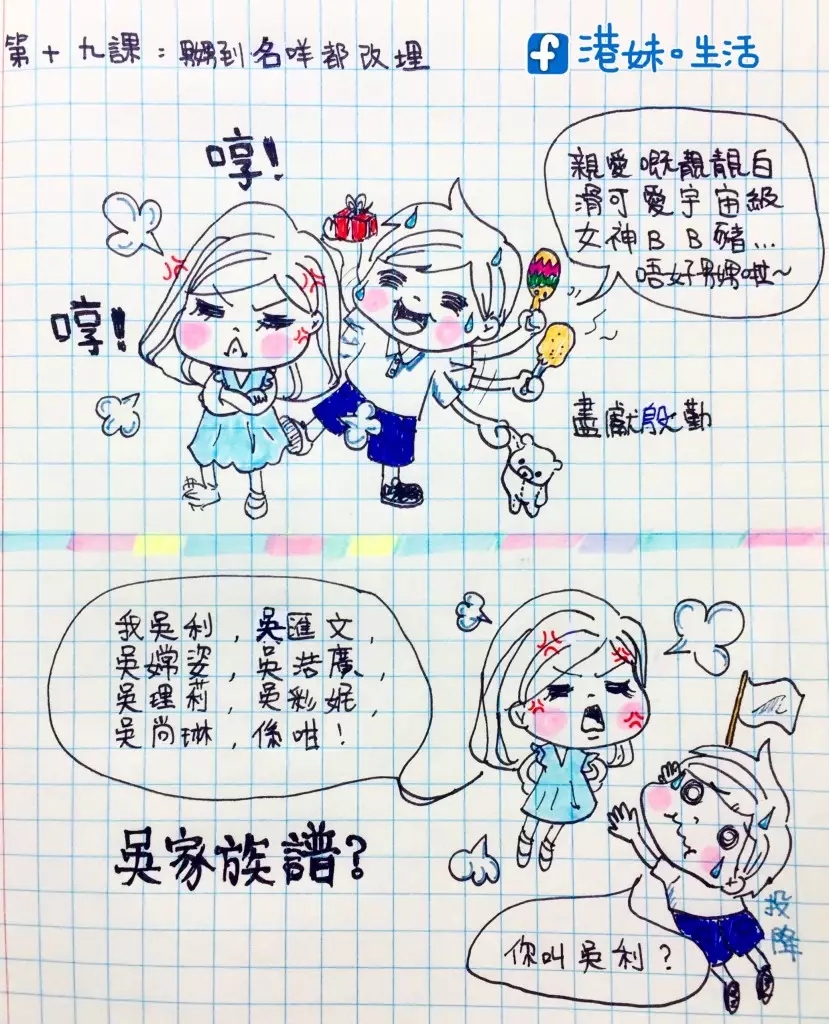 第十九課：嬲到名咩都改埋
港妹。生活
哼!
哼!
親愛嘅靚靚白
滑可愛宇宙級
女神BB豬...
唔好嬲啦~
盡獻殷勤
我吳利，吳匯文，
吳嫦姿，吳浩廣，
吳理莉，吳彩妮，
吳尚琳，係咁！
吳家族譜?
你叫吳利？
投
降